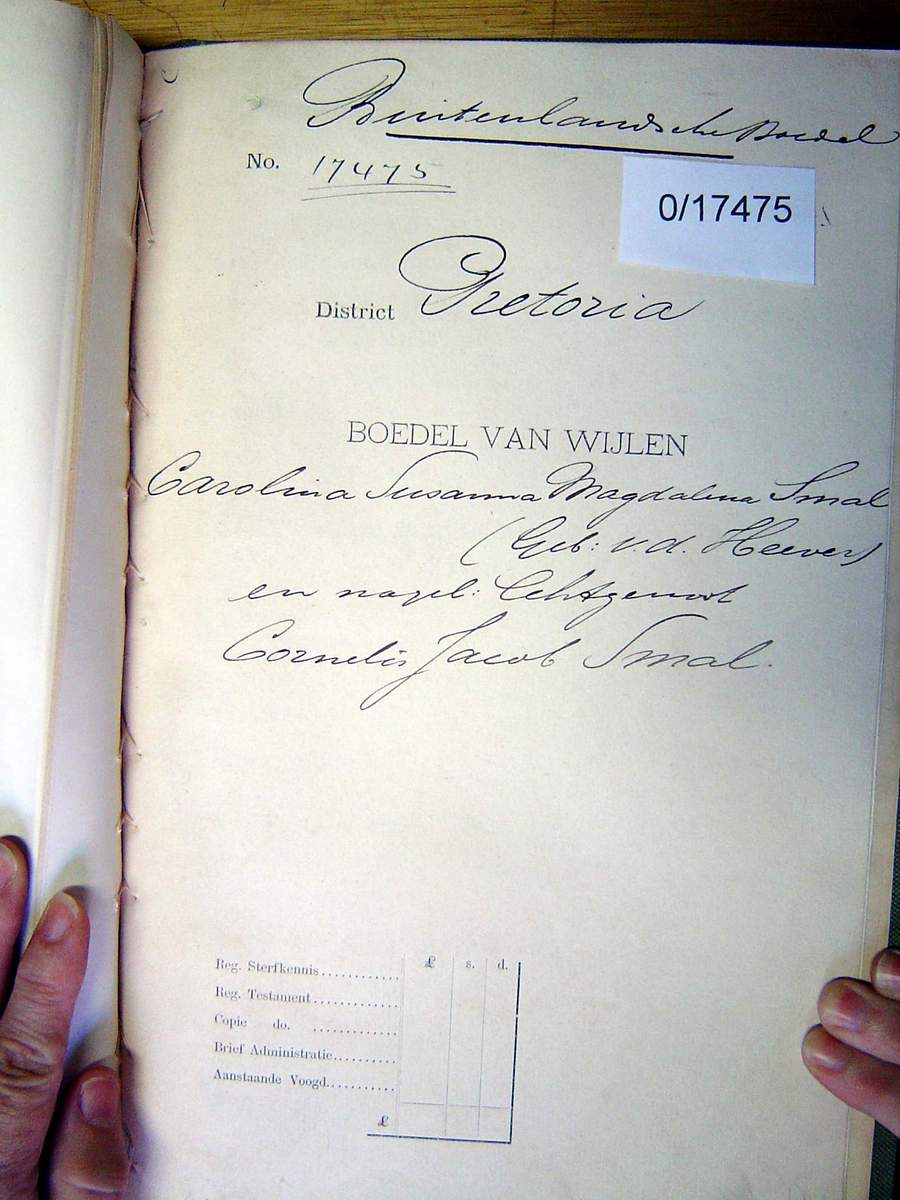 Buitenlandsche Boedel
No. 17475
0/17475
District Pretoria
BOEDEL VAN WIJLEN
Carolina Susanna Magdalena Smal
(Geb: v.d. Heever)
en nagel: Echtgenoot
Cornelis Jacob Smal.
£ s. d.
Reg. Sterfkennis............
Reg. Testament.............
Copie do. .............
Brief Administratie..........
Aanstaande Voogd..........
£